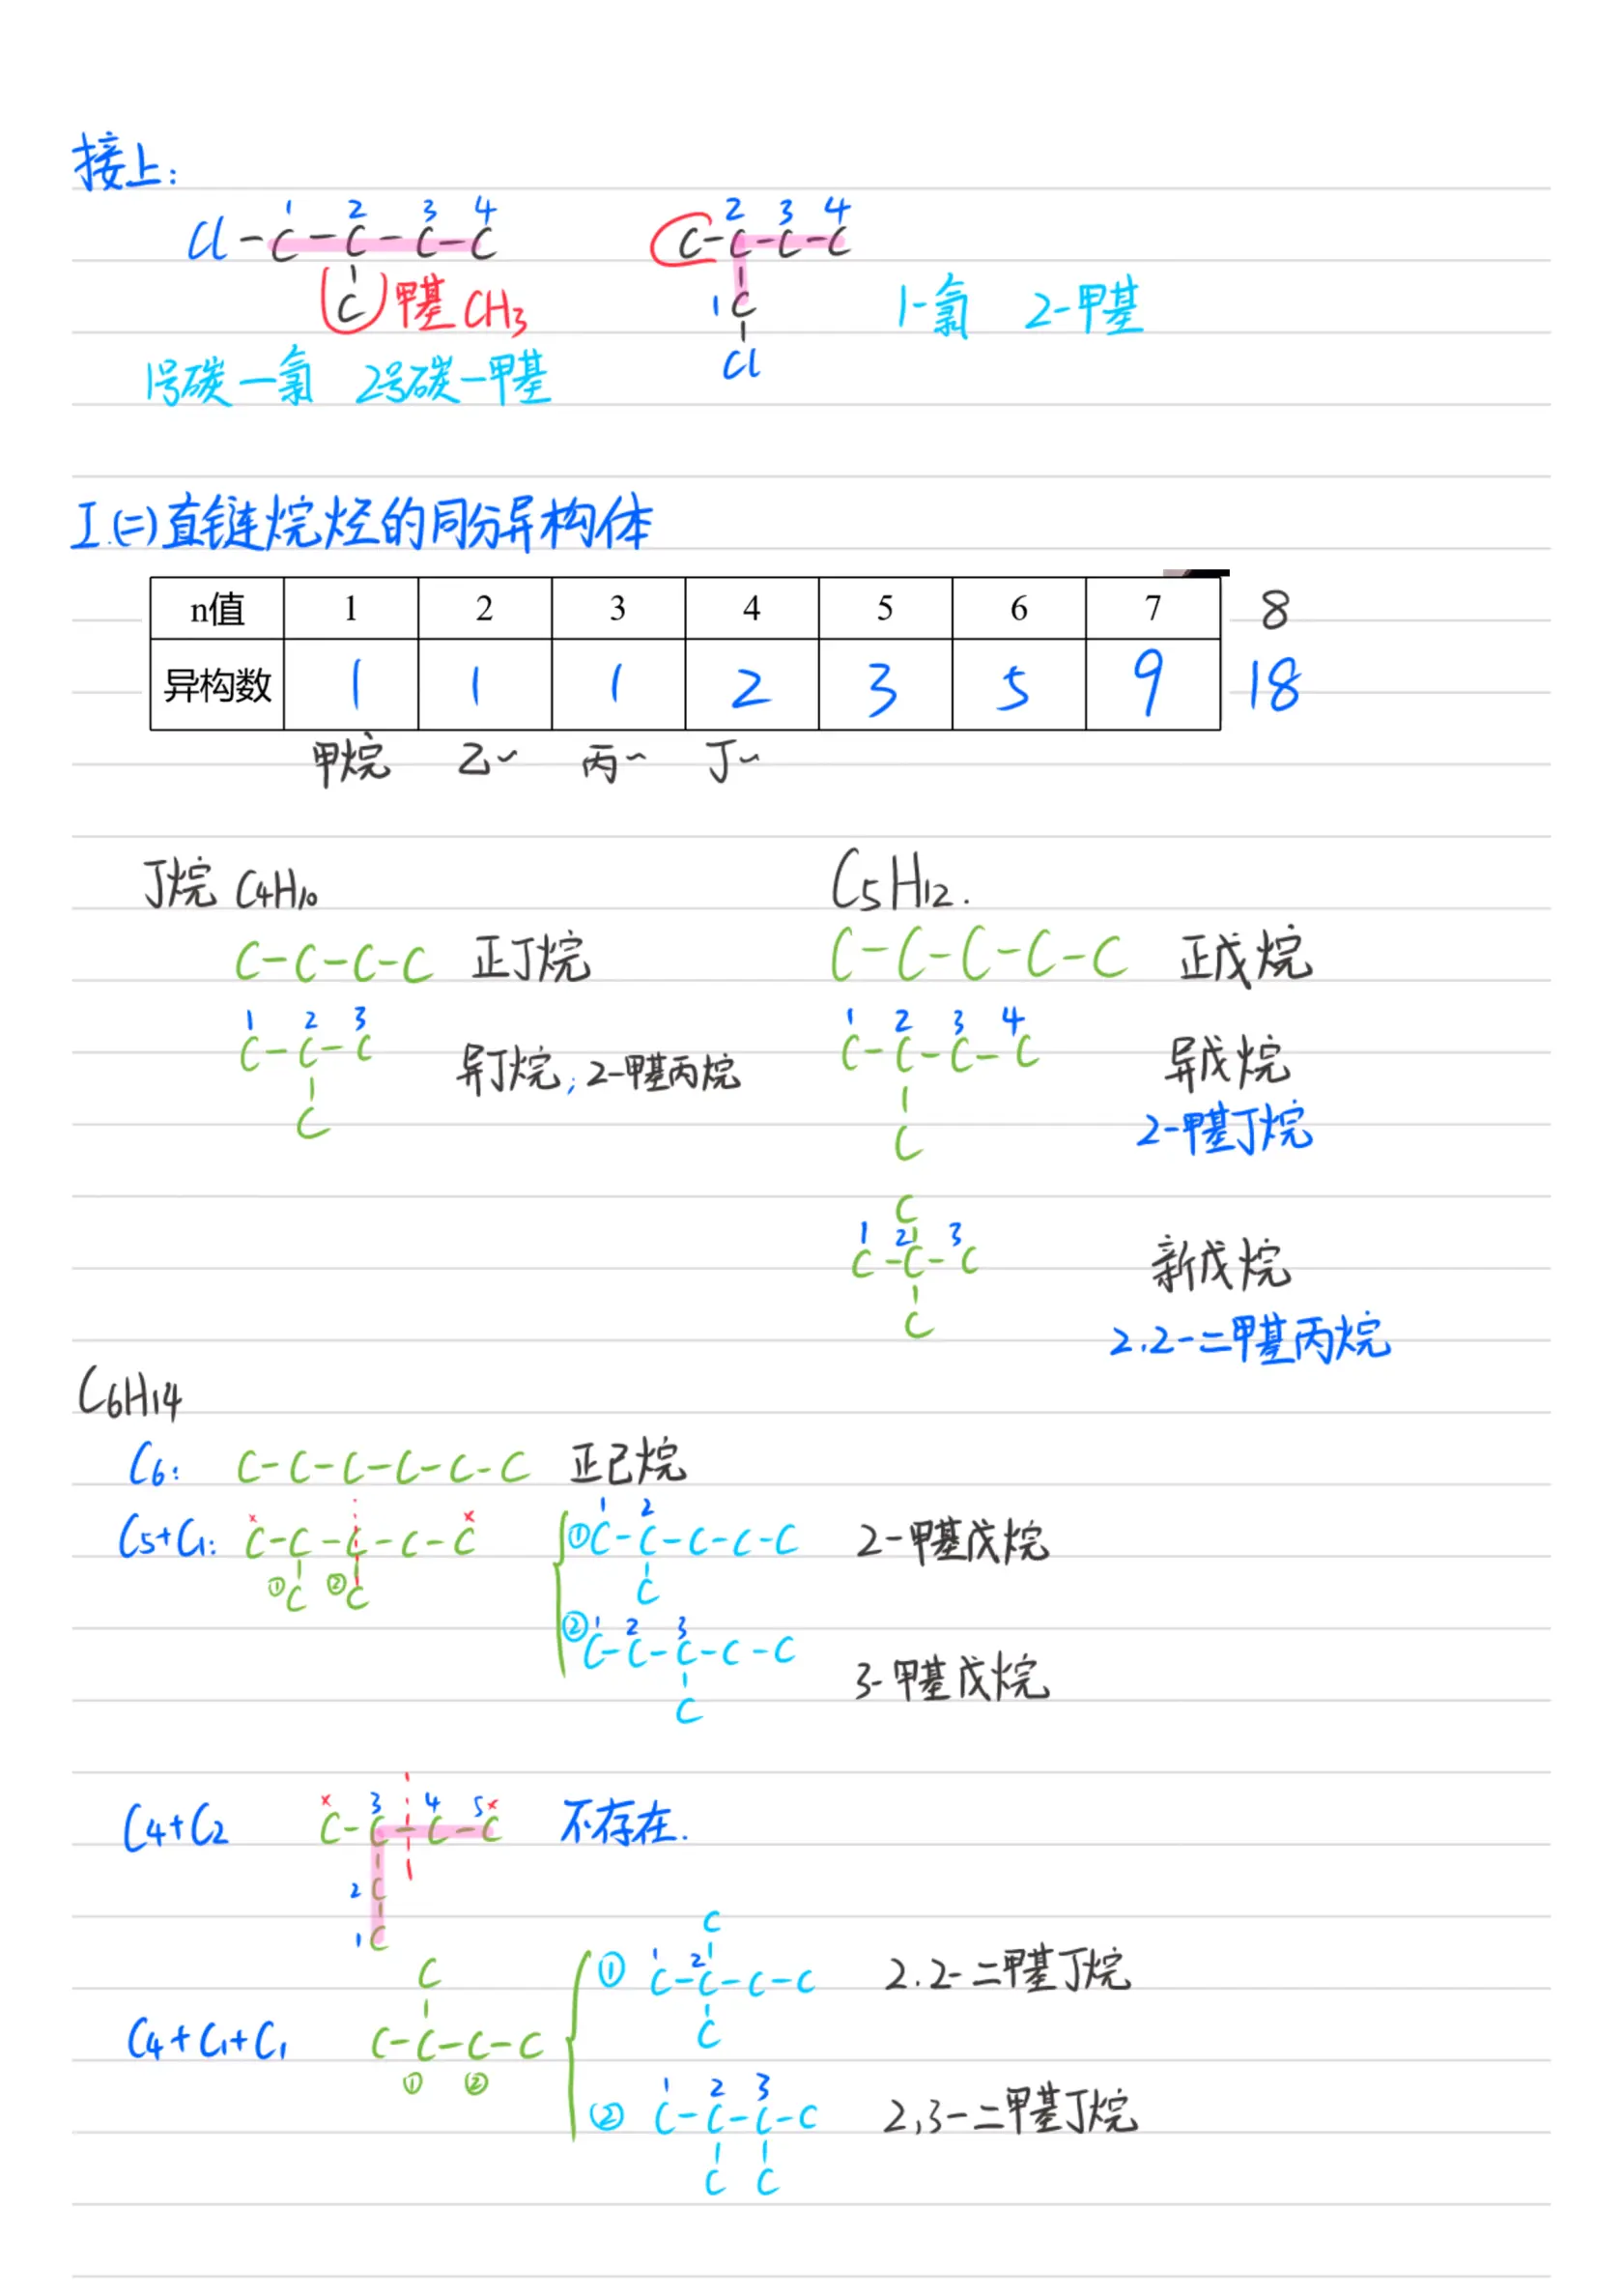 接上:
1 2 3 4 2 3 4
Cl-C-C-C-C C-C-C-C
C 甲基 CH3 1 C 1-氯 2-甲基
Cl
1号碳一氯 2号碳一甲基
I.(二)直链烷烃的同分异构体
n值 1 2 3 4 5 6 7 8
异构数 1 1 1 2 3 5 9 18
甲烷 乙~ 丙~ 丁~
丁烷 C4H10 C5H12.
C-C-C-C 正丁烷 C-C-C-C-C 正戊烷
1 2 3 1 2 3 4
C-C-C 异丁烷;2-甲基丙烷 C-C-C-C 异戊烷
C C 2-甲基丁烷
C
1 2 3
C-C-C 新戊烷
C
2.2-二甲基丙烷
C6H14
C6: C-C-C-C-C-C 正已烷
× × 1 2
C5+C1: C-C-C-C-C ①C-C-C-C-C 2-甲基戊烷
①C ②C C
② 1 2 3
C-C-C-C-C 3-甲基戊烷
C
× 3 4 5×
C4+C2 C-C-C-C 不存在.
2 C
1 C
C C
① 1 2
C-C-C-C 2.2-二甲基丁烷
C4+C1+C1 C-C-C-C C
① ②
1 2 3
② C-C-C-C 2,3-二甲基丁烷
C C